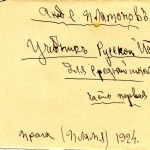 Акад. С. Платоновъ
Учебникъ Русской Ис
для средней школ
часть первая
Прага (Пламя) 1924.